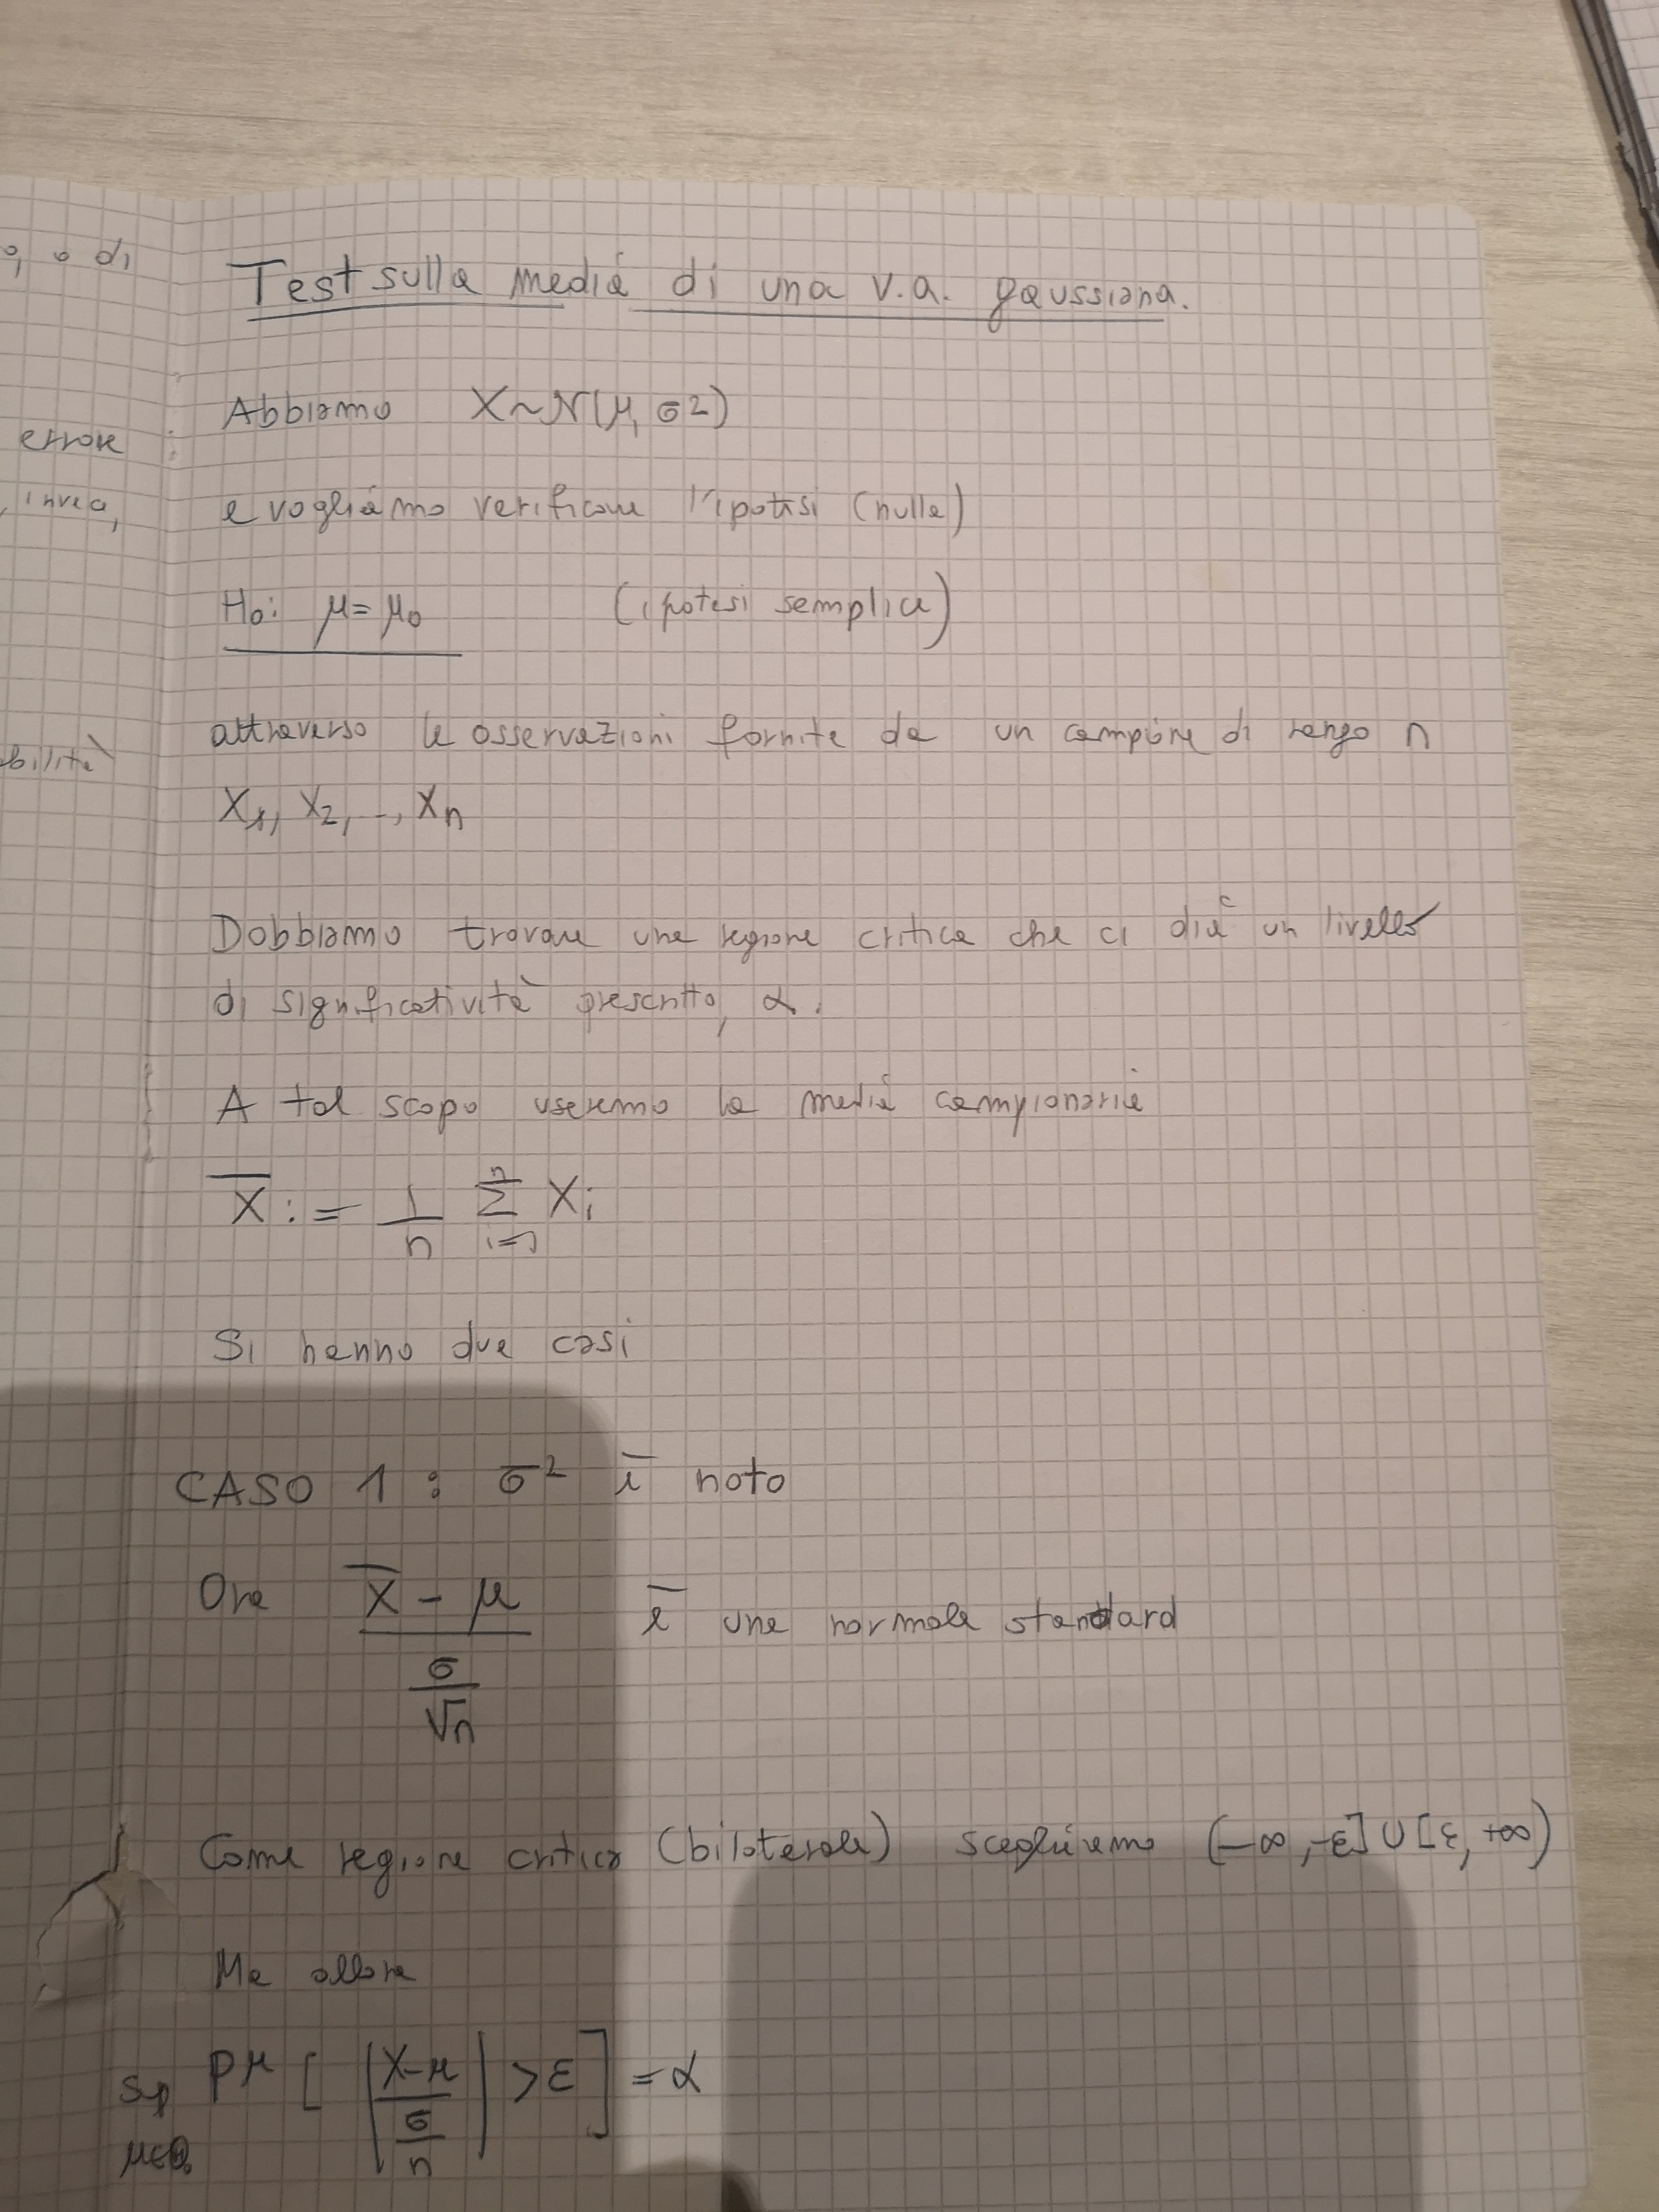 o, o di
errore
, invea,
bilità
Test sulla media di una v.a. gaussiana.
Abbiamo X~N(μ, σ2)
e vogliamo verificare l'ipotesi (nulla)
H0: μ=μ0 (ipotesi semplice)
attraverso le osservazioni fornite da un campione di rango n
X1, X2, .., Xn
Dobbiamo trovare una regione critica che ci dia un livello
di significatività prescritto, α.
A tal scopo useremo la media campionaria
X̅ := 1/n Σ_{i=1}^{n} Xi
Si hanno due casi
CASO 1 : σ² è noto
Ora (X̅ - μ)/(σ/√n) è una normale standard
Come regione critica (bilaterale) scegliremo (-∞, -ε] ∪ [ε, +∞)
Ma allora
Sup_{μ∈Θ0} Pμ [ |(X-μ)/(σ/n)| > ε ] = α